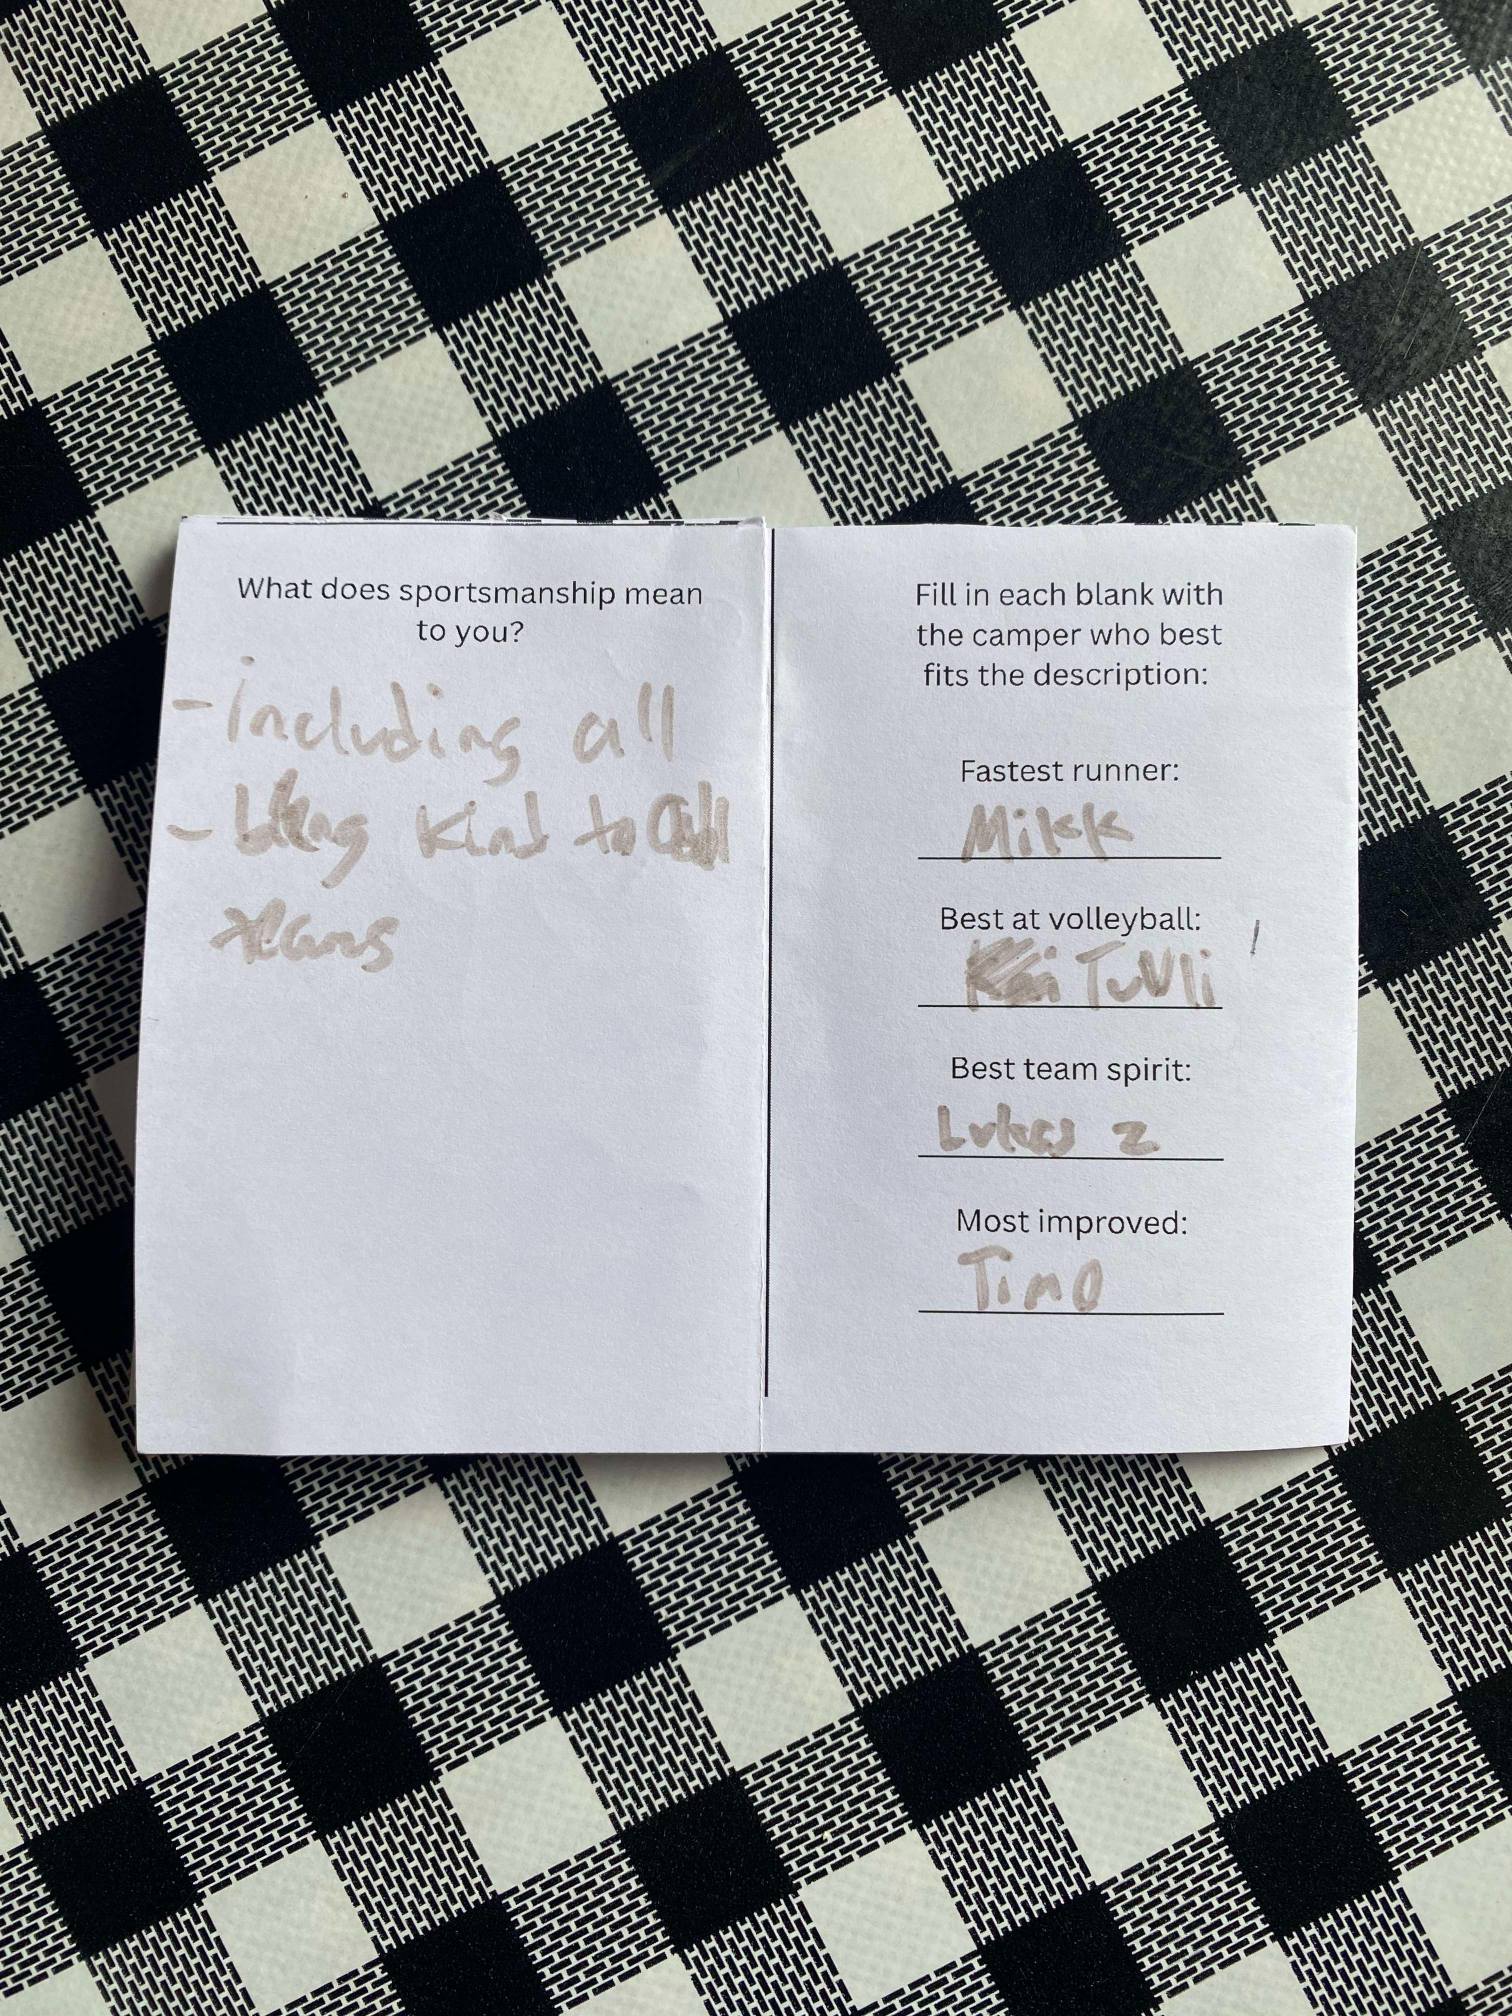 What does sportsmanship mean
to you?
- including all
- being kind to all
teams
Fill in each blank with
the camper who best
fits the description:
Fastest runner:
Mikk
Best at volleyball:
Tuvli
Best team spirit:
Lukas Z
Most improved:
Timo